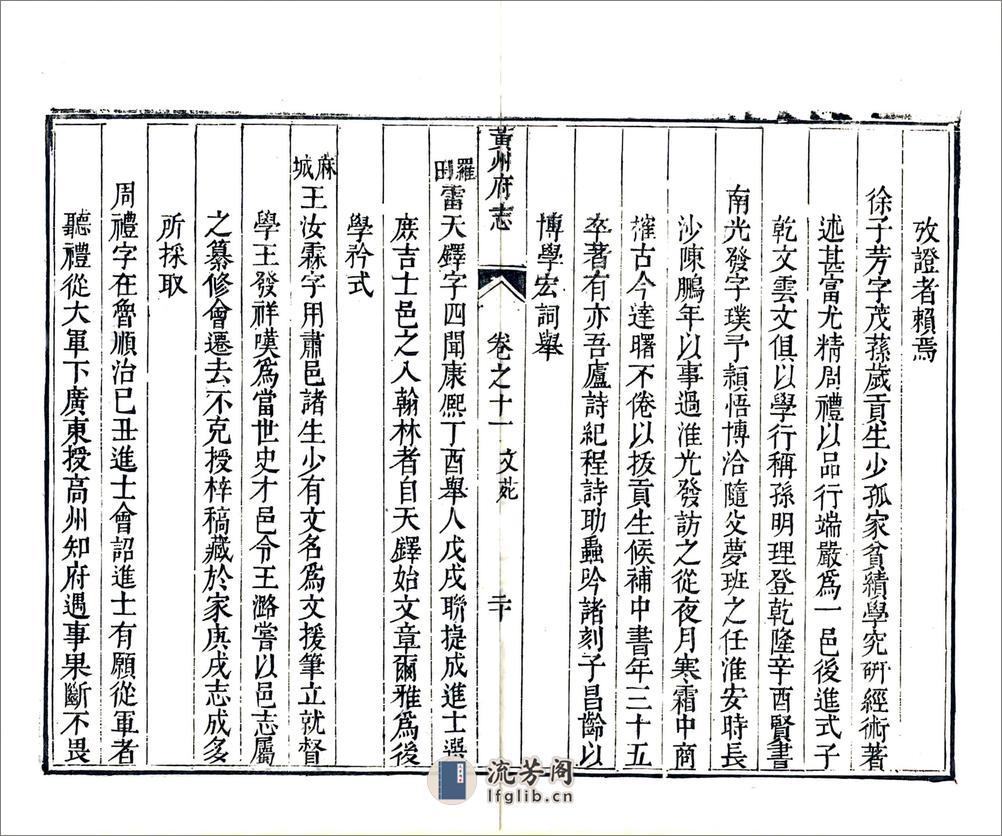 攷證者賴焉
徐子芳字茂蓀歲貢生少孤家貧績學究研經術著
述甚富尤精周禮以品行端嚴爲一邑後進式子
乾文雲文俱以學行稱孫明理登乾隆辛酉賢書
南光發字璞予頴悟博洽隨父夢班之任淮安時長
沙陳鵬年以事過淮光發訪之從夜月寒霜中商
搉古今達曙不倦以拔貢生候補中書年三十五
卒著有亦吾廬詩紀程詩助蟲吟諸刻子昌齡以
博學宏詞舉
黃州府志
卷之十一 文苑 二十
羅田雷天鐸字四聞康熙丁酉舉人戊戌聯捷成進士選
庶吉士邑之入翰林者自天鐸始文章爾雅爲後
學矜式
麻城王汝霖字用肅邑諸生少有文名爲文援筆立就督
學王發祥嘆爲當世史才邑令王潞嘗以邑志屬
之纂修會遷去不克授梓稿藏於家庚戌志成多
所採取
周禮字在魯順治己丑進士會詔進士有願從軍者
聽禮從大軍下廣東授高州知府遇事果斷不畏
流芳阁
lfglib.cn